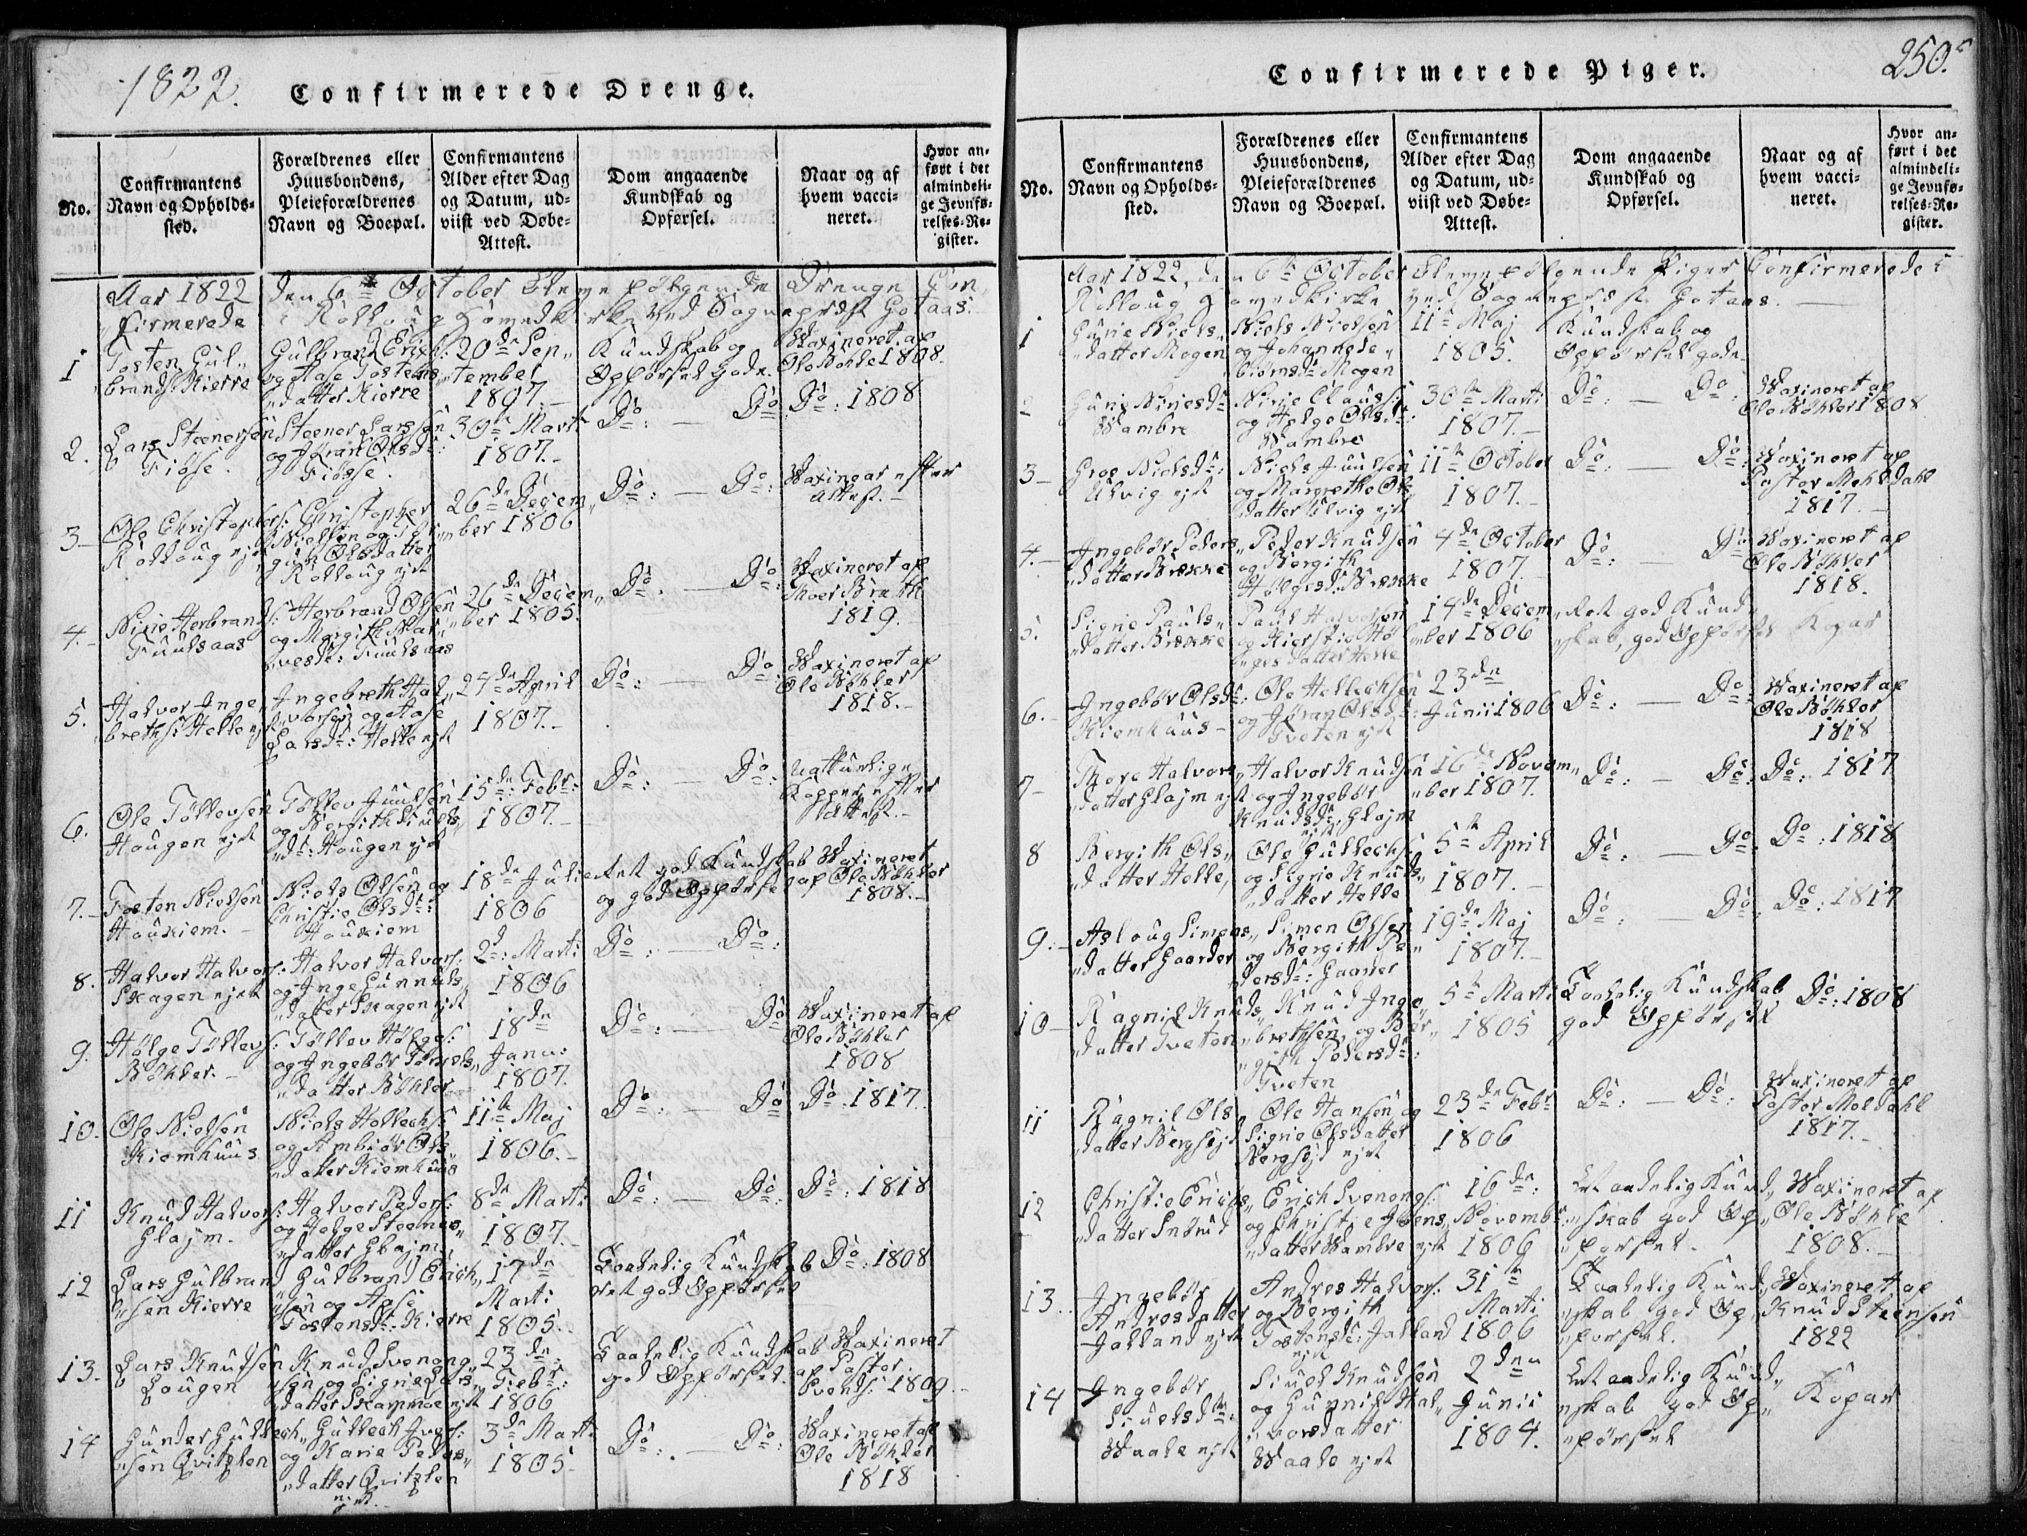 1822.
Confirmerede Drenge.
No.
Confirmantens
Navn og Opholds-
sted.
Forældrenes eller
Huusbondens,
Pleieforældrenes
Navn og Boepæl.
Confirmantens
Alder efter Dag
og Datum, ud-
viist ved Døbe-
Attest.
Dom angaaende
Kundskab og
Opførsel.
Naar og af
hvem vacci-
neret.
Hvor an-
ført i det
almindeli-
ge Jevnfø-
relses-Re-
gister.
Aar 1822 den 6te October bleve følgende Drenge Con„
firmerede i Rollaug Hovedkirke ved Sognepræst Gotaas.
1
Tosten Gul„
brands: Kierre
Gulbrand Erichs:
og Aase Tostens
„datter Kierre
20de Sep„
„tember
1807.
Kundskab og
Opførsel gode.
Waxineret af
Ole Bøhle 1808.
2.
Lars Steenersen
Fiøse.
Steener Larssen
og Jøran Olsdr:
Fiøse.
30te Marti
1807.
Do: — Do
Do: 1808
3
Ole Christophers:
Rollaug ejet
Christopher
Nielsen og
Olsdatter
Rollaug ejet
26de Decem„
„ber 1806
Do: — Do:
Waxineret efter
Attest.
4.
Nirie Herbrands:
Fuulsaas
Herbrand Olsen
og Margith Nar„
„vesdr: Fuulsaas
26de Decem„
„ber 1805.
Do: — Do:
Waxineret af
1819.
5.
Halvor Inge„
breths: Helle ejet
Ingebreth Hal„
„vorsen og Aase
Larsdr: Helle ejet
24de April
1807.
Do: — Do:
Waxineret af
Ole Bøhler
1818.
6.
Ole Tøllevsen
Haugen ejet
Tøllev Juulsen
og Bergith
„dr: Haugen ejet
15de Febr:
1807.
Do: — Do:
Natturlige
Kopper efter
Attest.
7.
Tosten Nielsen
Houkiem.
Niels Olsen og
Christie Olsdr:
Houkiem
18de Julie
1806
Ret god Kundskab
og god Opførsel
Waxineret
af Ole Bøhler
1808.
8.
Halvor Halvors:
Skagen ejet
Halvor Halvors:
og Inge Gunnuls„
„datter Skagen ejet
2de Marti
1806
Do: — Do:
9.
Hølge Tøllevs:
Bøhler.
Tøllev Hølges:
og Ingebør
„datter Bøhler
18de
Janu:
1807.
Do: — Do
Waxineret af
Ole Bøhler
1808
10.
Ole Nielsen
Kiemhuus
Niels Hellechs:
og Ambiør Ols„
„datter Kiemhuus
11te Maj
1806.
Do: — Do
Do: 1817.
11
Knud Halvors:
Glajm.
Halvor Peders:
og Helge Steener„
„datter Glajm
8de Marti
1807.
Do: — Do:
Do: 1818
12
Lars Gulbran„
„sen Kierre
Gulbrand Erich„
„sen og Aase
Tostensdr: Kierre
17de
Marti
1805.
Taalelig Kundskab
ret god Opførsel
Do: 1808
13.
Lars Knudsen
Lougen
Knud Svenong„
„sen og Signe Lars„
„datter Skammoe ejet
23de
Febr:
1806
Taalelig Kundskab
god Opførsel.
Waxineret
af Pastor
Svends: 1809
14
Gunder Gullech„
„sen Qvitzlen
Gullech Ivers:
og Karie Peders„
„datter Qvitzlen
ejet.
3de Marti
1805.
Do: — Do:
Waxineret af
Ole Bøhler
1818
Confirmerede Piger.
250.
No.
Confirmantens
Navn og Opholds-
sted.
Forældrenes eller
Huusbondens,
Pleieforældrenes
Navn og Boepæl.
Confirmantens
Alder efter Dag
og Datum, ud-
viist ved Døbe-
Attest.
Dom angaaende
Kundskab og
Opførsel.
Naar og af
hvem vacci-
neret.
Hvor an-
ført i det
almindeli-
ge Jevnfø-
relses-Re-
gister.
Aar 1822, den 6te October bleve følgende Piger Confirmerede i
Rollaug Hovedkirke ved Sognepræst Gotaas.
1
Gurie Niels„
„datter Mogen
Niels Nielsen
og Johanne
biørnsdr: Mogen
11te Maj
1805.
Kundskab og
Opførsel gode
2
Guri Niriesdr
Wambre
Nirie Clauss:
og Helge Olsdr:
Wambre
30te Marti
1807.
Do: — Do:
Waxineret af
Ole Bøhler 1808
3
Groe Nielsdr:
Ulvig ejet
Niels Juulsen
og Margrethe Ols„
„datter Ulvig ejet
11te October
1807.
Do: — Do:
Waxineret af
Pastor Mehldahl
1817.
4.
Ingebør Peders„
„datter Brekke
Peder Knudsen
og Bergith
Hølgesdr: Brekke
4de October
1807.
Do: — Do
Waxineret af
Ole Bøhler
1818.
5.
Signe Pauls„
„datter Brekke
Paul Halvorsen
og Kierstie Hø„
„ges datter Helle
14de Decem„
„ber 1806
Ret god Kund„
„skab, god Opførsel
Kopar
6.
Ingebør Olsdr:
Kiemhuus
Ole Hellechsen
og Jøran Olsdr:
Tveten ejet
23de
Junii 1806
Do: — Do:
Waxineret af
Ole Bøhler
1818
7
Thore Halvors„
„datter Glajm ejet
Halvor Knudsen
og Ingebør
Knudsdr: Glajm
ejet
16de Novem„
„ber 1807.
Do: — Do:
Do: 1817
8
Bergith Ols„
„datter Helle,
Ole Gullechs:
og Signe Knuds„
„datter Helle
5te April
1807.
Do: — Do:
Do: 1818
9.
Aslaug Simens„
„datter Gaarder
Simen Olssen
og Bergith Pe„
„dersdr: Gaarder
19de Maj
1807.
Do: — Do:
Do: 1817
10
Ragnil Knuds„
„datter Tveten
Knud Inge„
„brethsen, og Ber„
„gith Pedersdr:
Tveten
5te Marti
1805
Taalelig Kundskab
god Opførsel
Do: 1808
11
Ragnil Ols„
„datter Bergsøjd
Ole Hansen og
Signe Olsdatter
Bergsøjd ejet
23de Febr
1806
Do: — Do:
Waxineret af
Pastor Meldahl
1817.
12
Christie Erichs„
„datter Snerud
Erich Svenongs:
og Christie Jøens„
„datter Wambre ejet
16de:
Novembr:
1806
Ret aadelig Kund„
„skab god Op„
„førsel.
Waxineret af
Ole Bøhle
1808.
13.
Ingebør
Andresdatter
Jalland ejet
Andres Halvors:
og Bergith
Tostensdr: Jalland
ejet
31te
Marti
1806
Taalelig Kund„
„skab god Op„
„førsel.
Waxineret af
Knud Steensen
1822
14
Ingebør
Siuelsdr:
Waale ejet
Siuel Knudsen
og Gunnild Hal„
„vorsdatter
Waale ejet
2den
Junii
1804.
Ret aadelig Kund„
„skab god Op„
„førsel
Kopar